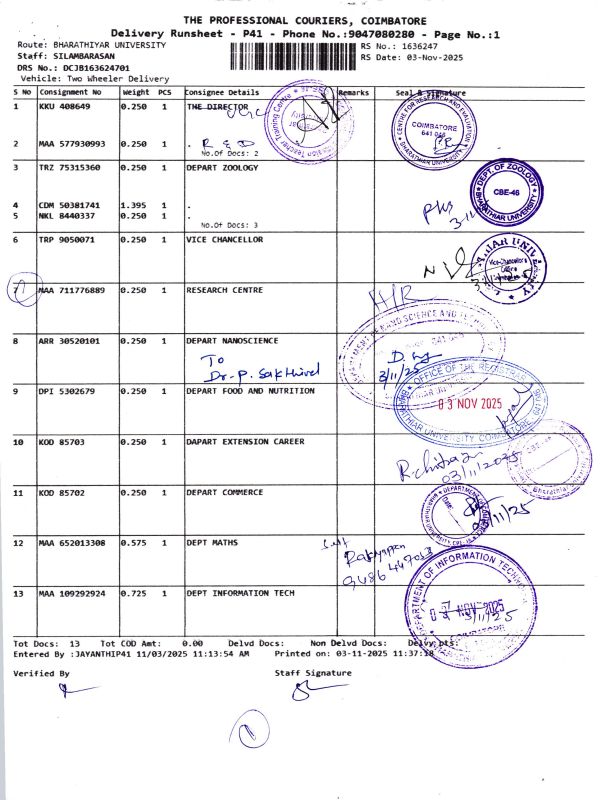 THE PROFESSIONAL COURIERS, COIMBATORE
Delivery Runsheet - P41 - Phone No.:9047080280 - Page No.:1
Route: BHARATHIYAR UNIVERSITY
RS No.: 1636247
Staff: SILAMBARASAN
RS Date: 03-Nov-2025
DRS No.: DCJB163624701
Vehicle: Two Wheeler Delivery
S No Consignment No Weight PCS Consignee Details Remarks Seal & Signature
1 KKU 408649 0.250 1 THE DIRECTOR
CENTRE FOR RESEARCH AND EVALUATION
COIMBATORE
641 046
BHARATHIAR UNIVERSITY
2 MAA 577930993 0.250 1 . R & D
No.Of Docs: 2
3 TRZ 75315360 0.250 1 DEPART ZOOLOGY
DEPT. OF ZOOLOGY
CBE-46
BHARATHIAR UNIVERSITY
4 CDM 50381741 1.395 1 .
5 NKL 8440337 0.250 1 .
No.Of Docs: 3
6 TRP 9050071 0.250 1 VICE CHANCELLOR
Vice-Chancellor's
Office
7 MAA 711776889 0.250 1 RESEARCH CENTRE
8 ARR 30520101 0.250 1 DEPART NANOSCIENCE
To
Dr. P. Sakthivel
3/11/25
9 DPI 5302679 0.250 1 DEPART FOOD AND NUTRITION
OFFICE OF THE REGISTRAR
03 NOV 2025
BHARATHIAR UNIVERSITY COIMBATORE
10 KOD 85703 0.250 1 DAPART EXTENSION CAREER
R. chitra
03/11/2025
11 KOD 85702 0.250 1 DEPART COMMERCE
12 MAA 652013308 0.575 1 DEPT MATHS
13 MAA 109292924 0.725 1 DEPT INFORMATION TECH
DEPARTMENT OF INFORMATION TECHNOLOGY
NOV 2025
3/11/25
COIMBATORE
Tot Docs: 13 Tot COD Amt: 0.00 Delvd Docs: Non Delvd Docs: Delvy pts:
Entered By :JAYANTHIP41 11/03/2025 11:13:54 AM Printed on: 03-11-2025 11:37:18
Verified By Staff Signature
1